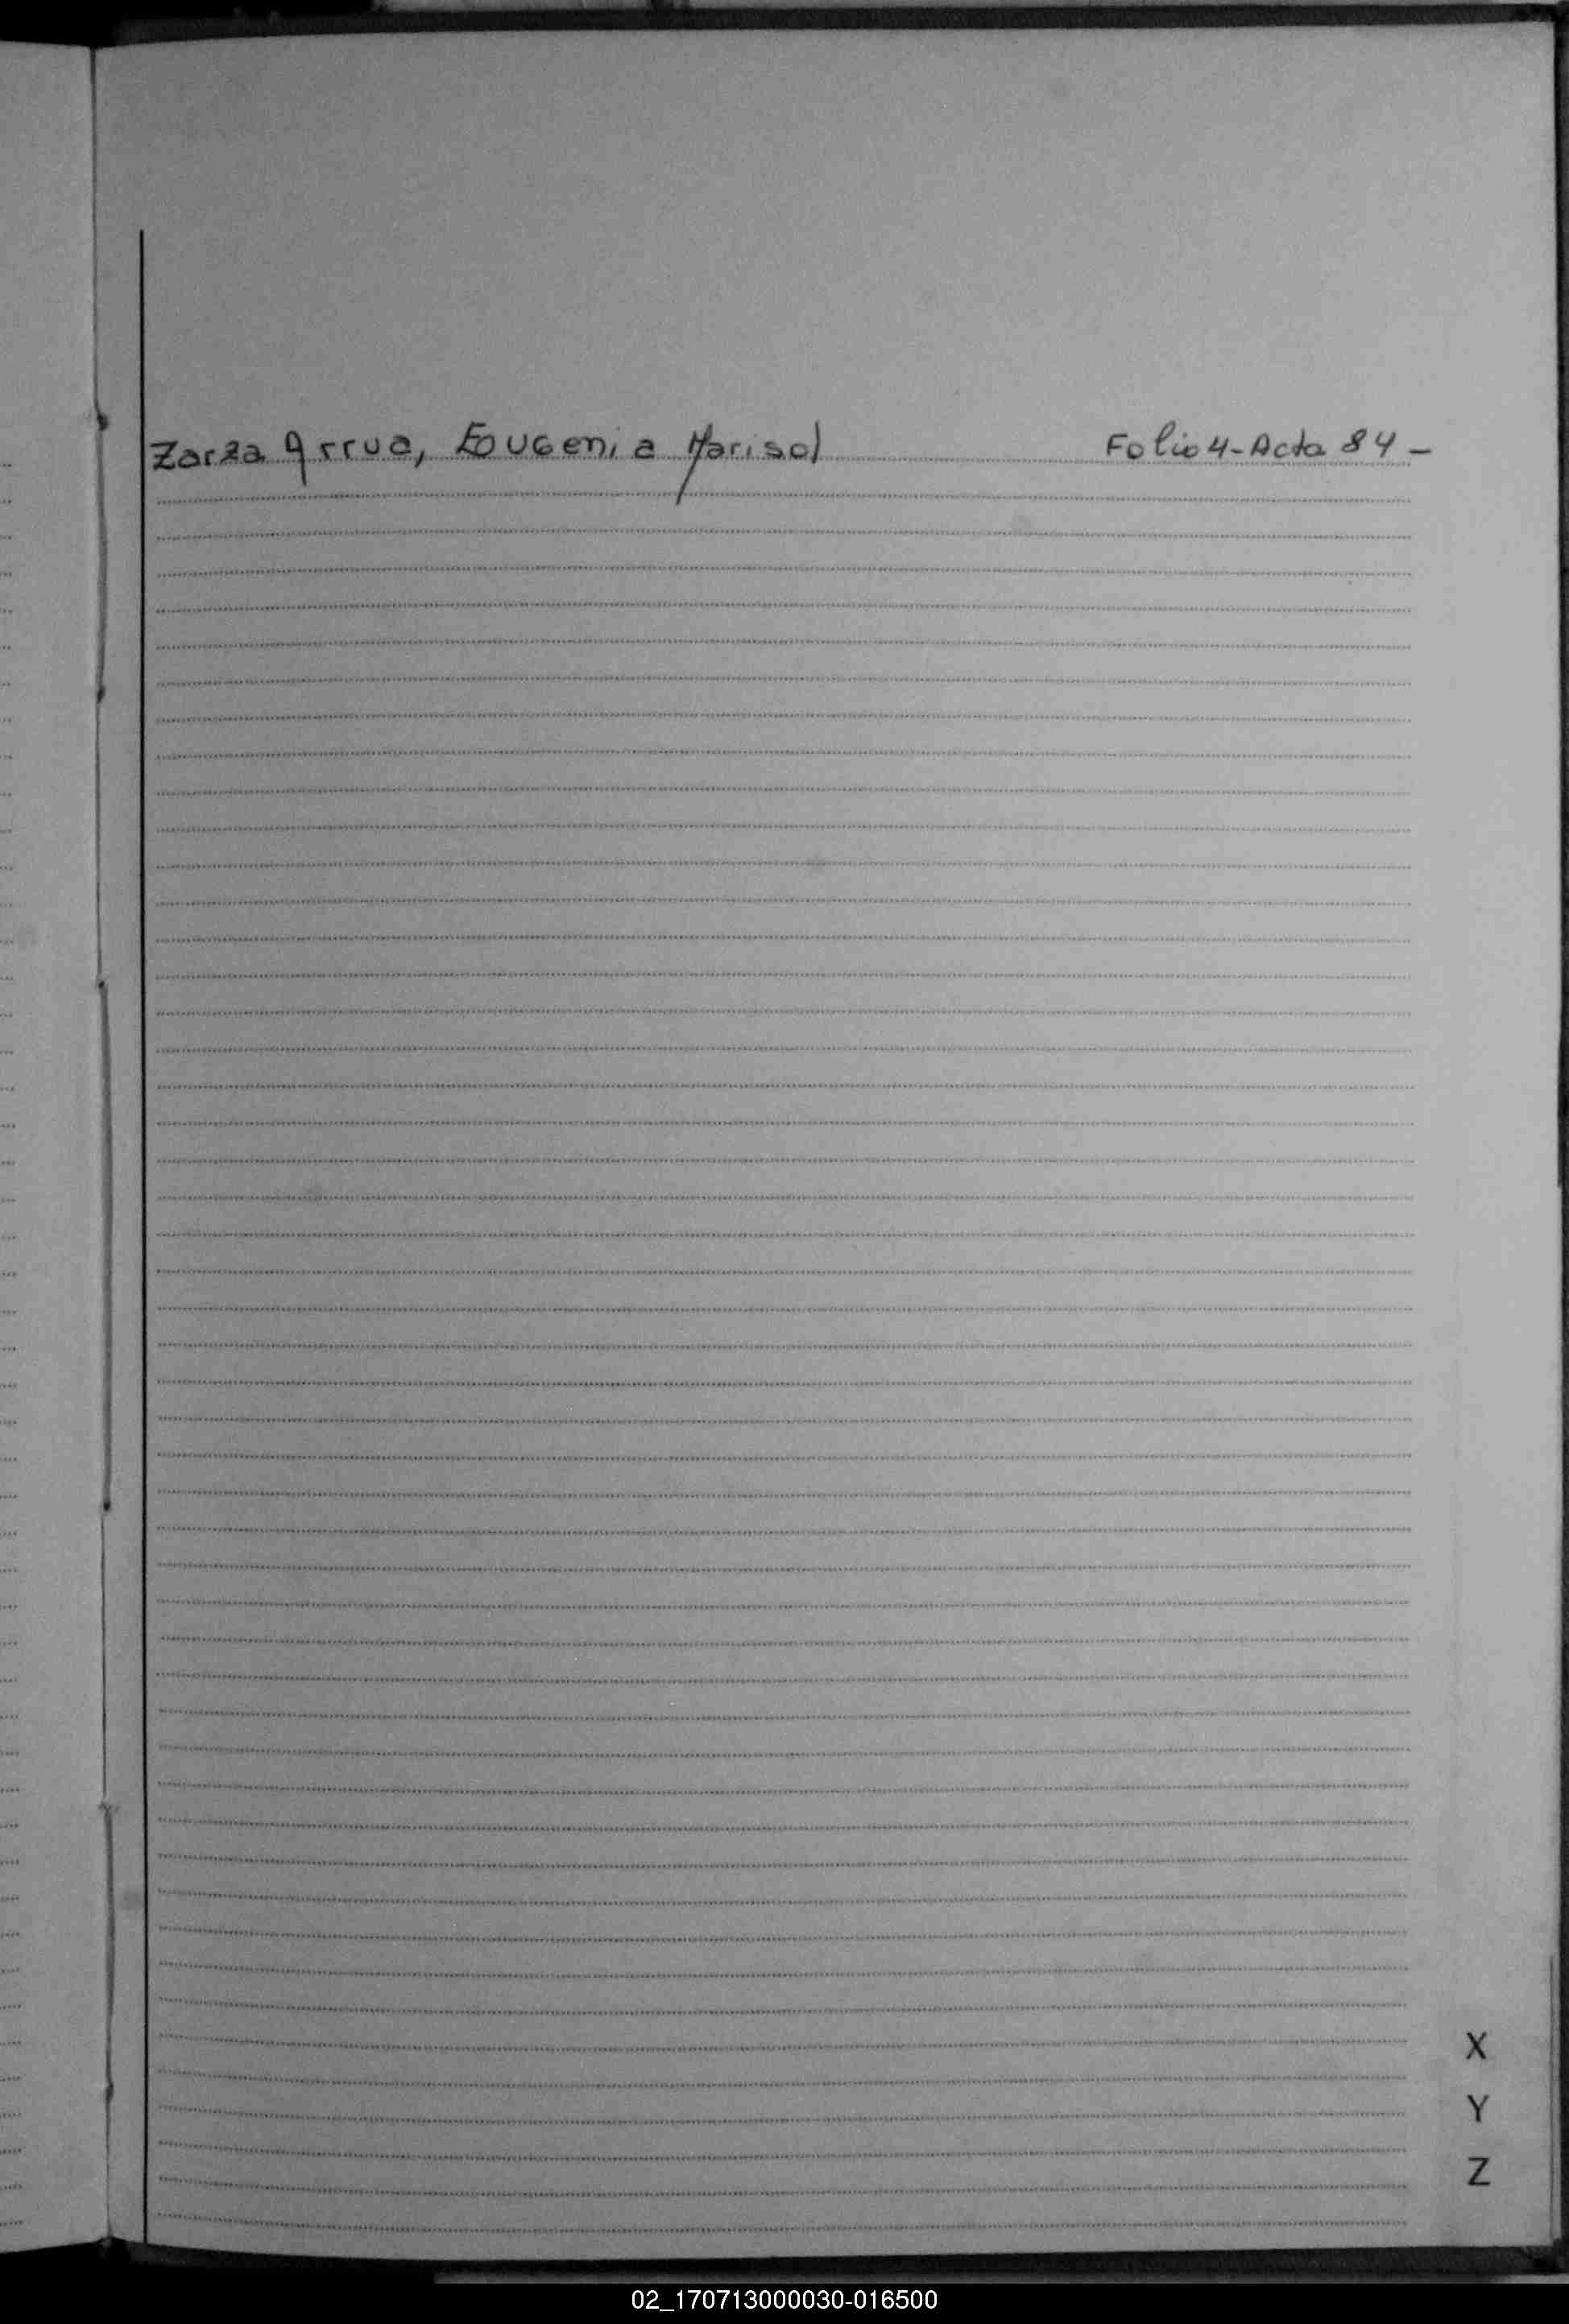 Zarza Arrua, Eougenia Marisol Folio 4-Acta 84 -
X
Y
Z
02_170713000030-016500